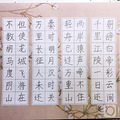 朝辞白帝彩云间
千里江陵一日还
两岸猿声啼不住
轻舟已过万重山
秦时明月汉时关
万里长征人未还
但使龙城飞将在
不教胡马度阴山